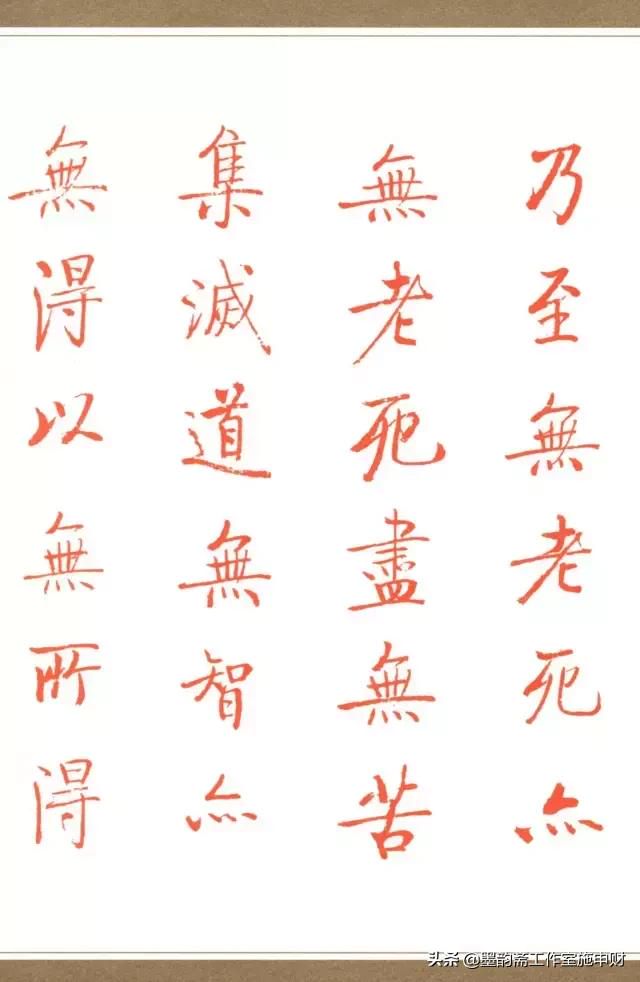 乃至無老死亦
無老死盡無苦
集滅道無智亦
無得以無所得
头条 @墨韵斋工作室施申财